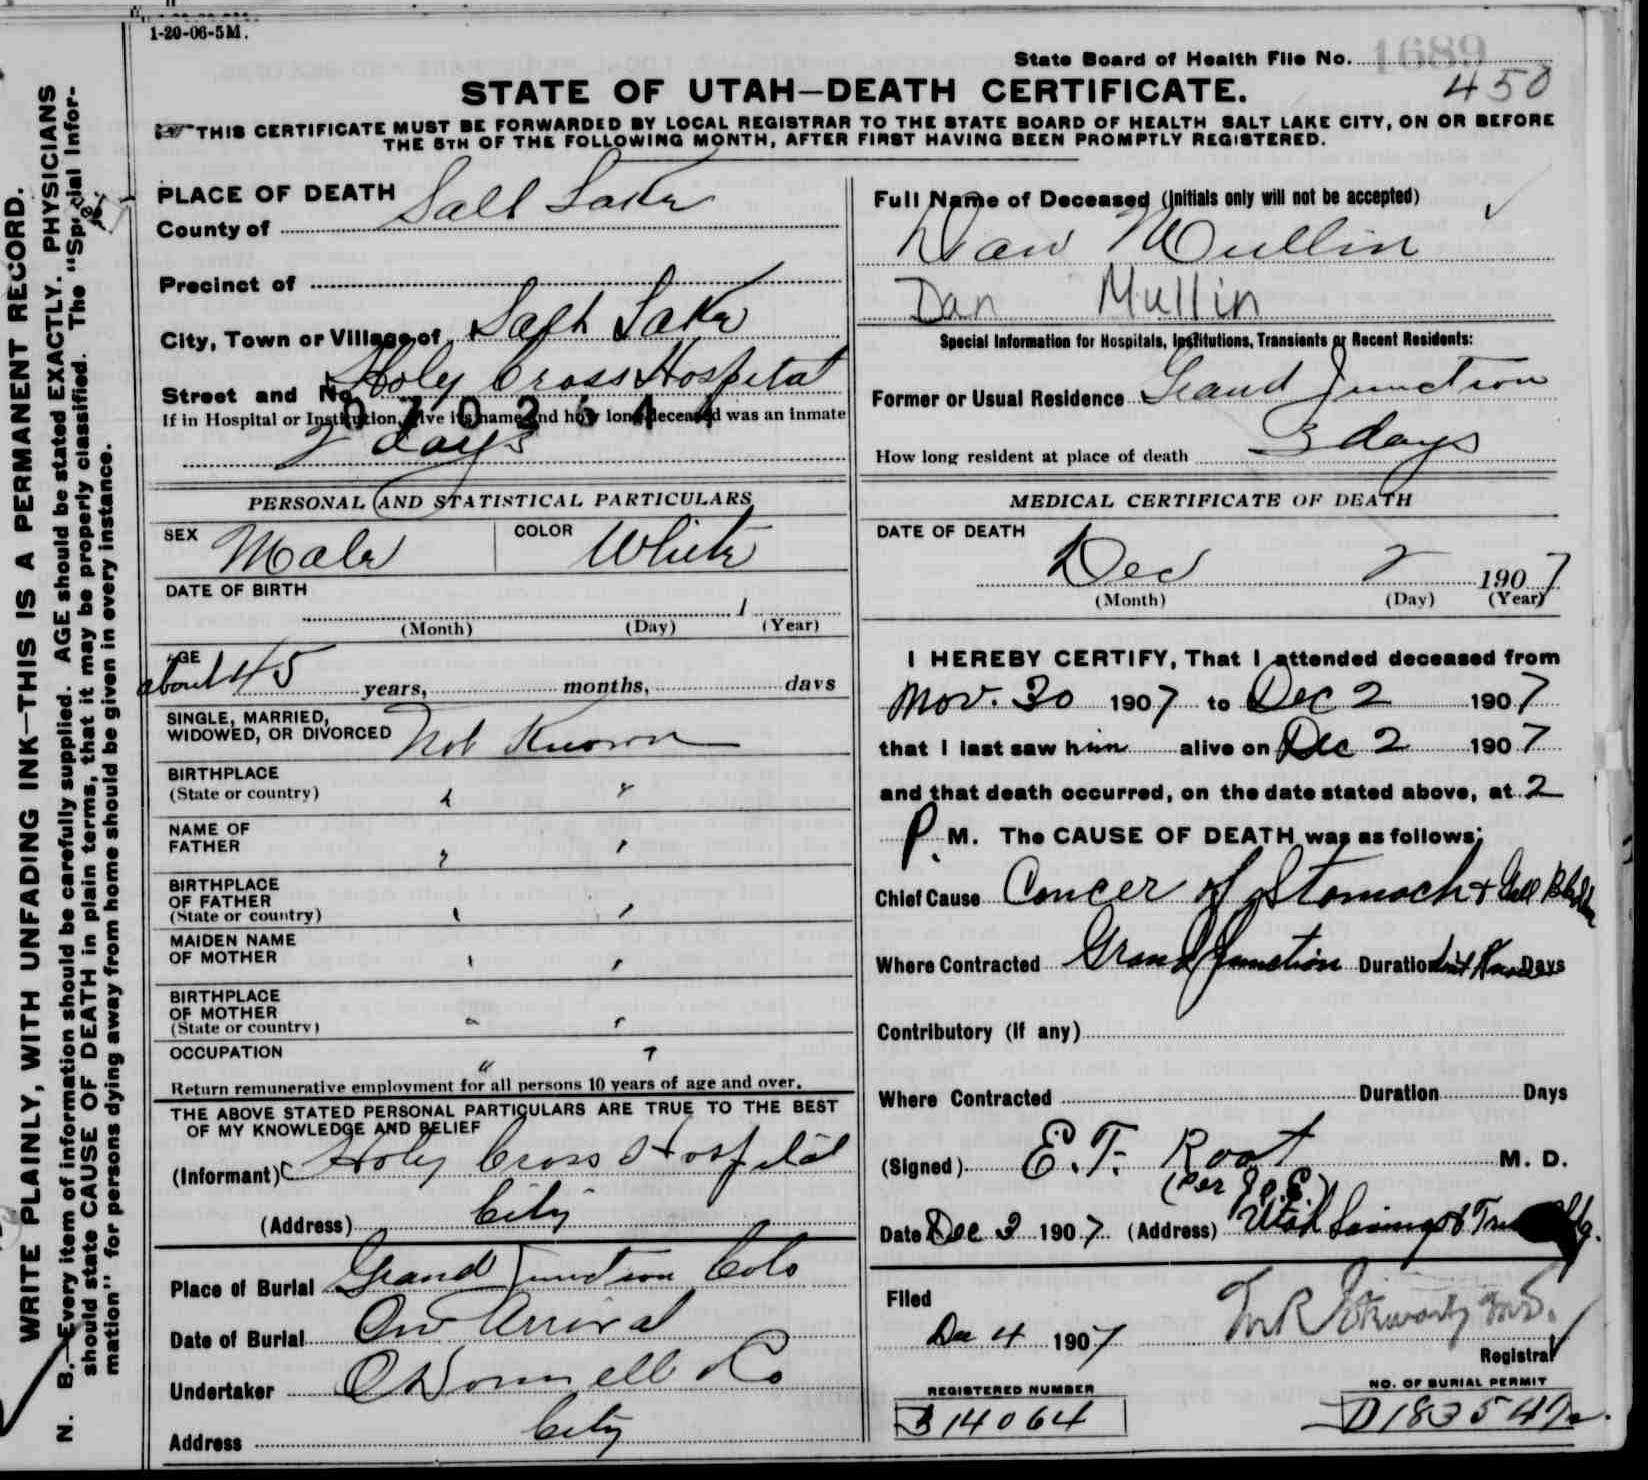 1-20-06-5M.
State Board of Health File No. 1689
450
STATE OF UTAH—DEATH CERTIFICATE.
THIS CERTIFICATE MUST BE FORWARDED BY LOCAL REGISTRAR TO THE STATE BOARD OF HEALTH SALT LAKE CITY, ON OR BEFORE
THE 5TH OF THE FOLLOWING MONTH, AFTER FIRST HAVING BEEN PROMPTLY REGISTERED.
WRITE PLAINLY, WITH UNFADING INK—THIS IS A PERMANENT RECORD.
N. B.—Every item of information should be carefully supplied. AGE should be stated EXACTLY. PHYSICIANS
should state CAUSE OF DEATH in plain terms, that it may be properly classified. The "Special Infor-
mation" for persons dying away from home should be given in every instance.
PLACE OF DEATH
County of Salt Lake
Precinct of
City, Town or Village of Salt Lake
Street and No. Holy Cross Hospital
If in Hospital or Institution, give its name and how long deceased was an inmate
2 days
PERSONAL AND STATISTICAL PARTICULARS
SEX Male COLOR White
DATE OF BIRTH
1
(Month) (Day) (Year)
AGE
about 45 years, months, days
SINGLE, MARRIED,
WIDOWED, OR DIVORCED Not Known
BIRTHPLACE
(State or country) " "
NAME OF
FATHER " "
BIRTHPLACE
OF FATHER
(State or country) " "
MAIDEN NAME
OF MOTHER " "
BIRTHPLACE
OF MOTHER
(State or country) " "
OCCUPATION " "
Return remunerative employment for all persons 10 years of age and over.
THE ABOVE STATED PERSONAL PARTICULARS ARE TRUE TO THE BEST
OF MY KNOWLEDGE AND BELIEF
(Informant) Holy Cross Hospital
(Address) City
Place of Burial Grand Junction Colo
Date of Burial On Arrival
Undertaker O'Donnell & Co
Address City
Full Name of Deceased (Initials only will not be accepted)
Dan Mullin
Dan Mullin
Special Information for Hospitals, Institutions, Transients or Recent Residents:
Former or Usual Residence Grand Junction
How long resident at place of death 3 days
MEDICAL CERTIFICATE OF DEATH
DATE OF DEATH
Dec 2 1907
(Month) (Day) (Year)
I HEREBY CERTIFY, That I attended deceased from
Nov. 30 1907 to Dec 2 1907
that I last saw him alive on Dec 2 1907
and that death occurred, on the date stated above, at 2
P. M. The CAUSE OF DEATH was as follows;
Chief Cause Cancer of Stomach & Gall Bladder
Where Contracted Grand Junction Duration Days
Contributory (if any)
Where Contracted Duration Days
(Signed) E. T. Root M. D.
(Per J. E.)
Date Dec 3 1907 (Address) Utah Savings & Trust Bldg.
Filed
Dec 4 1907
Registrar
REGISTERED NUMBER
B14064
NO. OF BURIAL PERMIT